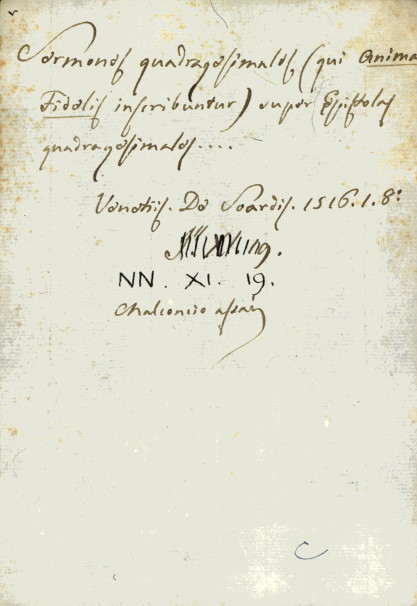 Sermones quadragesimales, (qui Anima
Fidelis inscribuntur) super Epistolas
quadragesimales....
Venetiis. De Soardis. 1516. 1. 8:
NN. XI. 19.
Malconcio assai